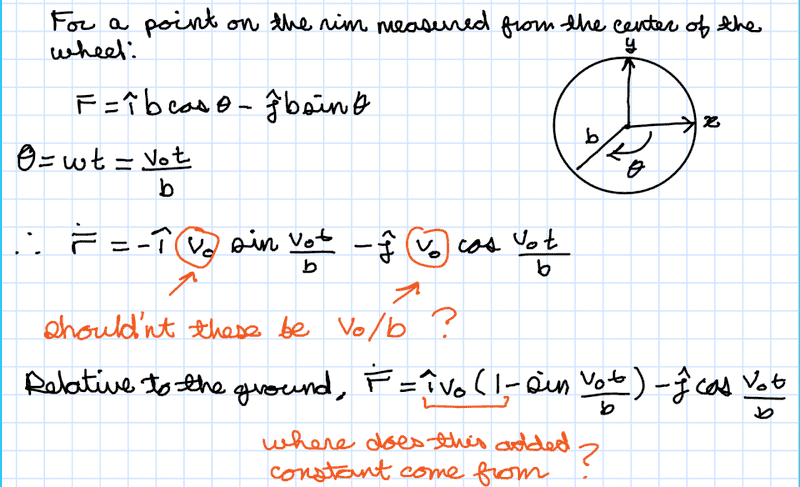 For a point on the rim measured from the center of the
wheel:
r̄ = îb cos θ - ĵb sin θ
θ = wt = v₀t/b
∴ ṙ̄ = -î v₀ sin v₀t/b - ĵ v₀ cos v₀t/b
should'nt these be v₀/b ?
Relative to the ground, ṙ̄ = îv₀(1 - sin v₀t/b) - ĵ cos v₀t/b
where does this added
constant come from ?
y
x
b
θ